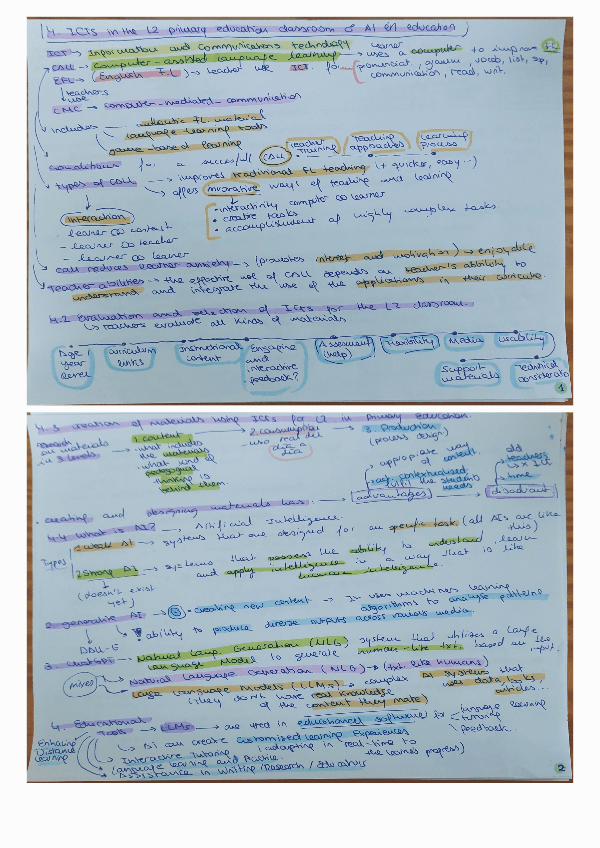 4. ICTs in the L2 primary education classroom & AI in education
ICT → Information and Communications technology
CALL → computer-assisted language learning → learner uses a computer to improve FL
EFL → English FL → teacher use ICT for pronunciat, gramm, vocab, list, sp,
communication, read, writ.
teachers use
CMC → computer-mediated-communication
includes
authentic FL material
language learning tools
game-based learning
conditions for a successful CALL
Teacher Training
Teaching approaches
Learning Process
types of CALL → improves traditional FL teaching (+ quicker, easy...)
→ offers innovative ways of teaching and learning
• interactivity computer ∞ learner
• creative tasks
• accomplishment of highly complex tasks
Interaction
- learner ∞ content
- learner ∞ teacher
- learner ∞ learner
CALL reduces learner anxiety → (promotes interest and motivation) → enjoyable
Teacher abilities → the effective use of CALL depends on teacher's ability to
understand and integrate the use of the applications in their curricula.
4.2 Evaluation and selection of ICTs for the L2 classroom.
↳ teachers evaluate all kinds of materials
Age / year level
curriculum links
Instructional content
Engagine and interactive feedback?
Assessment (help)
Flexibility
Media
usability
Support materials
Technical considerato
1
4.3 creation of materials using ICTs for L2 in Primary Education.
on materials in 3 levels
1. content
• what includes the materials
• what kind of pedagogical thinking is behind them.
2. consumption
- uso real del día a día
3. Production
(process design)
• creating and designing materials has
advantages
appropiate way of content.
contextualized with the students needs
disadvant
old teachers
time
4.4 What is AI? → Artificial Intelligence.
Types
1. Weak AI → systems that are designed for an specific task (all AIs are like this)
2. Strong AI → systems that possess the ability to understand, learn
and apply intelligence in a way that is like
human intelligence.
(doesn't exist yet)
2. generative AI → • creating new content → It uses machines learning
algorithms to analyse patterns
• ability to produce diverse outputs across various media.
DALL-E
3. ChatGPT → Natural Lang. Generation (NLG) system that utilizes a Large
Language Model to generate human-like txt. based on the input.
mixes
Natural Language Generation (NLG) → (txt like humans)
Large Language Models (LLMs) → complex AI systems that
uses data, books, articles...
(they don't have real knowledge
of the content they make)
4. Educational Tools → LLMs → are used in educational software for
language learning
tutoring
feedback.
Enhancing Distance Learning
↳ AI can create customized learning Experiences
Interactive Tutoring (adapting in real-time to
the learner's progress)
Language learning and Practice.
Assistance in Writing / Research /
2